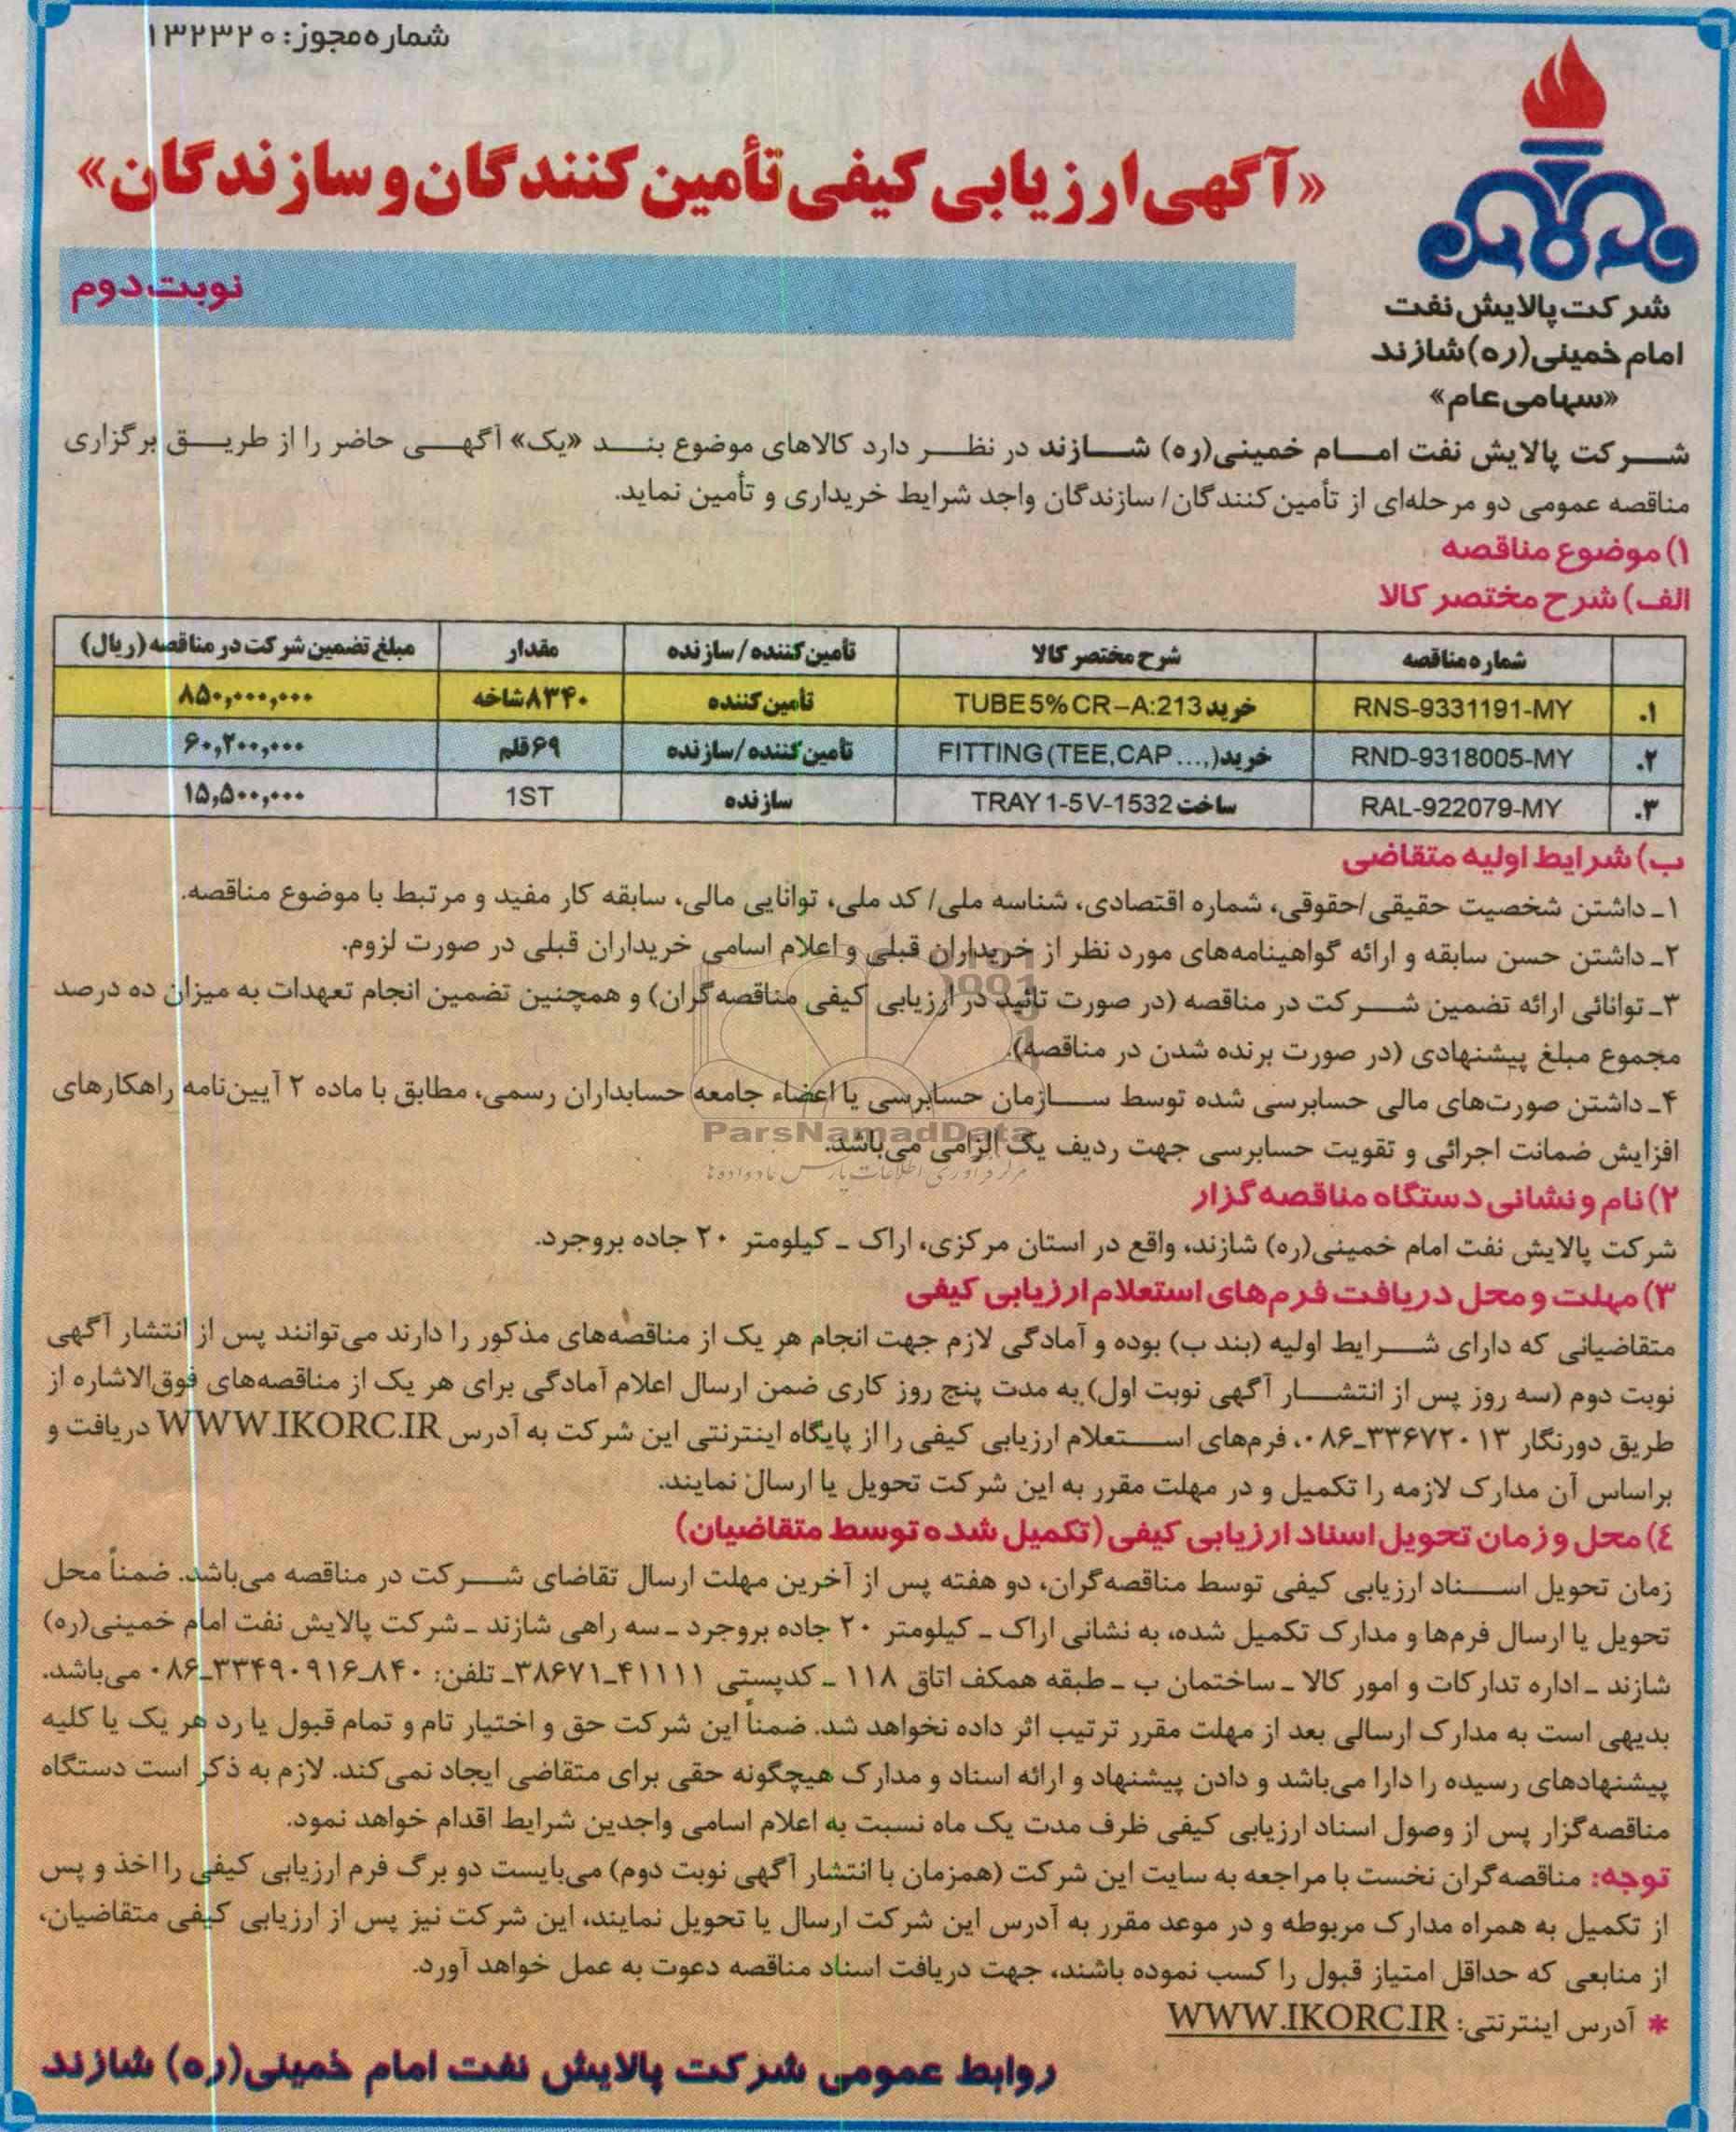 شماره مجوز: ۱۳۲۳۲۰
«آگهی ارزیابی کیفی تأمین کنندگان و سازندگان»
نوبت دوم
شرکت پالایش نفت
امام خمینی(ره) شازند
«سهامی عام»
شرکت پالایش نفت امام خمینی(ره) شازند در نظر دارد کالاهای موضوع بند «یک» آگهی حاضر را از طریق برگزاری
مناقصه عمومی دو مرحله‌ای از تأمین‌کنندگان/ سازندگان واجد شرایط خریداری و تأمین نماید.
۱) موضوع مناقصه
الف) شرح مختصر کالا
شماره مناقصه شرح مختصر کالا تأمین‌کننده/سازنده مقدار مبلغ تضمین شرکت در مناقصه (ریال)
۱. RNS-9331191-MY خرید TUBE5% CR-A:213 تأمین‌کننده ۸۳۴۰ شاخه ۸۵۰,۰۰۰,۰۰۰
۲. RND-9318005-MY خرید FITTING(TEE,CAP ...,) تأمین‌کننده/سازنده ۶۹ قلم ۶۰,۲۰۰,۰۰۰
۳. RAL-922079-MY ساخت TRAY 1-5 V-1532 سازنده 1ST ۱۵,۵۰۰,۰۰۰
ب) شرایط اولیه متقاضی
۱ـ داشتن شخصیت حقیقی/حقوقی، شماره اقتصادی، شناسه ملی/ کد ملی، توانایی مالی، سابقه کار مفید و مرتبط با موضوع مناقصه.
۲ـ داشتن حسن سابقه و ارائه گواهینامه‌های مورد نظر از خریداران قبلی و اعلام اسامی خریداران قبلی در صورت لزوم.
۳ـ توانائی ارائه تضمین شرکت در مناقصه (در صورت تائید در ارزیابی کیفی مناقصه‌گران) و همچنین تضمین انجام تعهدات به میزان ده درصد
مجموع مبلغ پیشنهادی (در صورت برنده شدن در مناقصه).
۴ـ داشتن صورت‌های مالی حسابرسی شده توسط سازمان حسابرسی یا اعضاء جامعه حسابداران رسمی، مطابق با ماده ۲ آیین‌نامه راهکارهای
افزایش ضمانت اجرائی و تقویت حسابرسی جهت ردیف یک الزامی می‌باشد.
ParsNamadData
۲) نام و نشانی دستگاه مناقصه گزار
شرکت پالایش نفت امام خمینی(ره) شازند، واقع در استان مرکزی، اراک ـ کیلومتر ۲۰ جاده بروجرد.
۳) مهلت و محل دریافت فرم‌های استعلام ارزیابی کیفی
متقاضیانی که دارای شرایط اولیه (بند ب) بوده و آمادگی لازم جهت انجام هر یک از مناقصه‌های مذکور را دارند می‌توانند پس از انتشار آگهی
نوبت دوم (سه روز پس از انتشار آگهی نوبت اول) به مدت پنج روز کاری ضمن ارسال اعلام آمادگی برای هر یک از مناقصه‌های فوق‌الاشاره از
طریق دورنگار ۳۳۶۷۲۰۱۳ـ۰۸۶، فرم‌های استعلام ارزیابی کیفی را از پایگاه اینترنتی این شرکت به آدرس WWW.IKORC.IR دریافت و
براساس آن مدارک لازمه را تکمیل و در مهلت مقرر به این شرکت تحویل یا ارسال نمایند.
٤) محل و زمان تحویل اسناد ارزیابی کیفی (تکمیل شده توسط متقاضیان)
زمان تحویل اسناد ارزیابی کیفی توسط مناقصه‌گران، دو هفته پس از آخرین مهلت ارسال تقاضای شرکت در مناقصه می‌باشد. ضمناً محل
تحویل یا ارسال فرم‌ها و مدارک تکمیل شده، به نشانی اراک ـ کیلومتر ۲۰ جاده بروجرد ـ سه راهی شازند ـ شرکت پالایش نفت امام خمینی(ره)
شازند ـ اداره تدارکات و امور کالا ـ ساختمان ب ـ طبقه همکف اتاق ۱۱۸ ـ کدپستی ۴۱۱۱۱ـ۳۸۶۷۱ـ تلفن: ۸۴۰ـ۳۳۴۹۰۹۱۶ـ۰۸۶ می‌باشد.
بدیهی است به مدارک ارسالی بعد از مهلت مقرر ترتیب اثر داده نخواهد شد. ضمناً این شرکت حق و اختیار تام و تمام قبول یا رد هر یک یا کلیه
پیشنهادهای رسیده را دارا می‌باشد و دادن پیشنهاد و ارائه اسناد و مدارک هیچگونه حقی برای متقاضی ایجاد نمی‌کند. لازم به ذکر است دستگاه
مناقصه‌گزار پس از وصول اسناد ارزیابی کیفی ظرف مدت یک ماه نسبت به اعلام اسامی واجدین شرایط اقدام خواهد نمود.
توجه: مناقصه‌گران نخست با مراجعه به سایت این شرکت (همزمان با انتشار آگهی نوبت دوم) می‌بایست دو برگ فرم ارزیابی کیفی را اخذ و پس
از تکمیل به همراه مدارک مربوطه و در موعد مقرر به آدرس این شرکت ارسال یا تحویل نمایند، این شرکت نیز پس از ارزیابی کیفی متقاضیان،
از منابعی که حداقل امتیاز قبول را کسب نموده باشند، جهت دریافت اسناد مناقصه دعوت به عمل خواهد آورد.
* آدرس اینترنتی: WWW.IKORC.IR
روابط عمومی شرکت پالایش نفت امام خمینی(ره) شازند